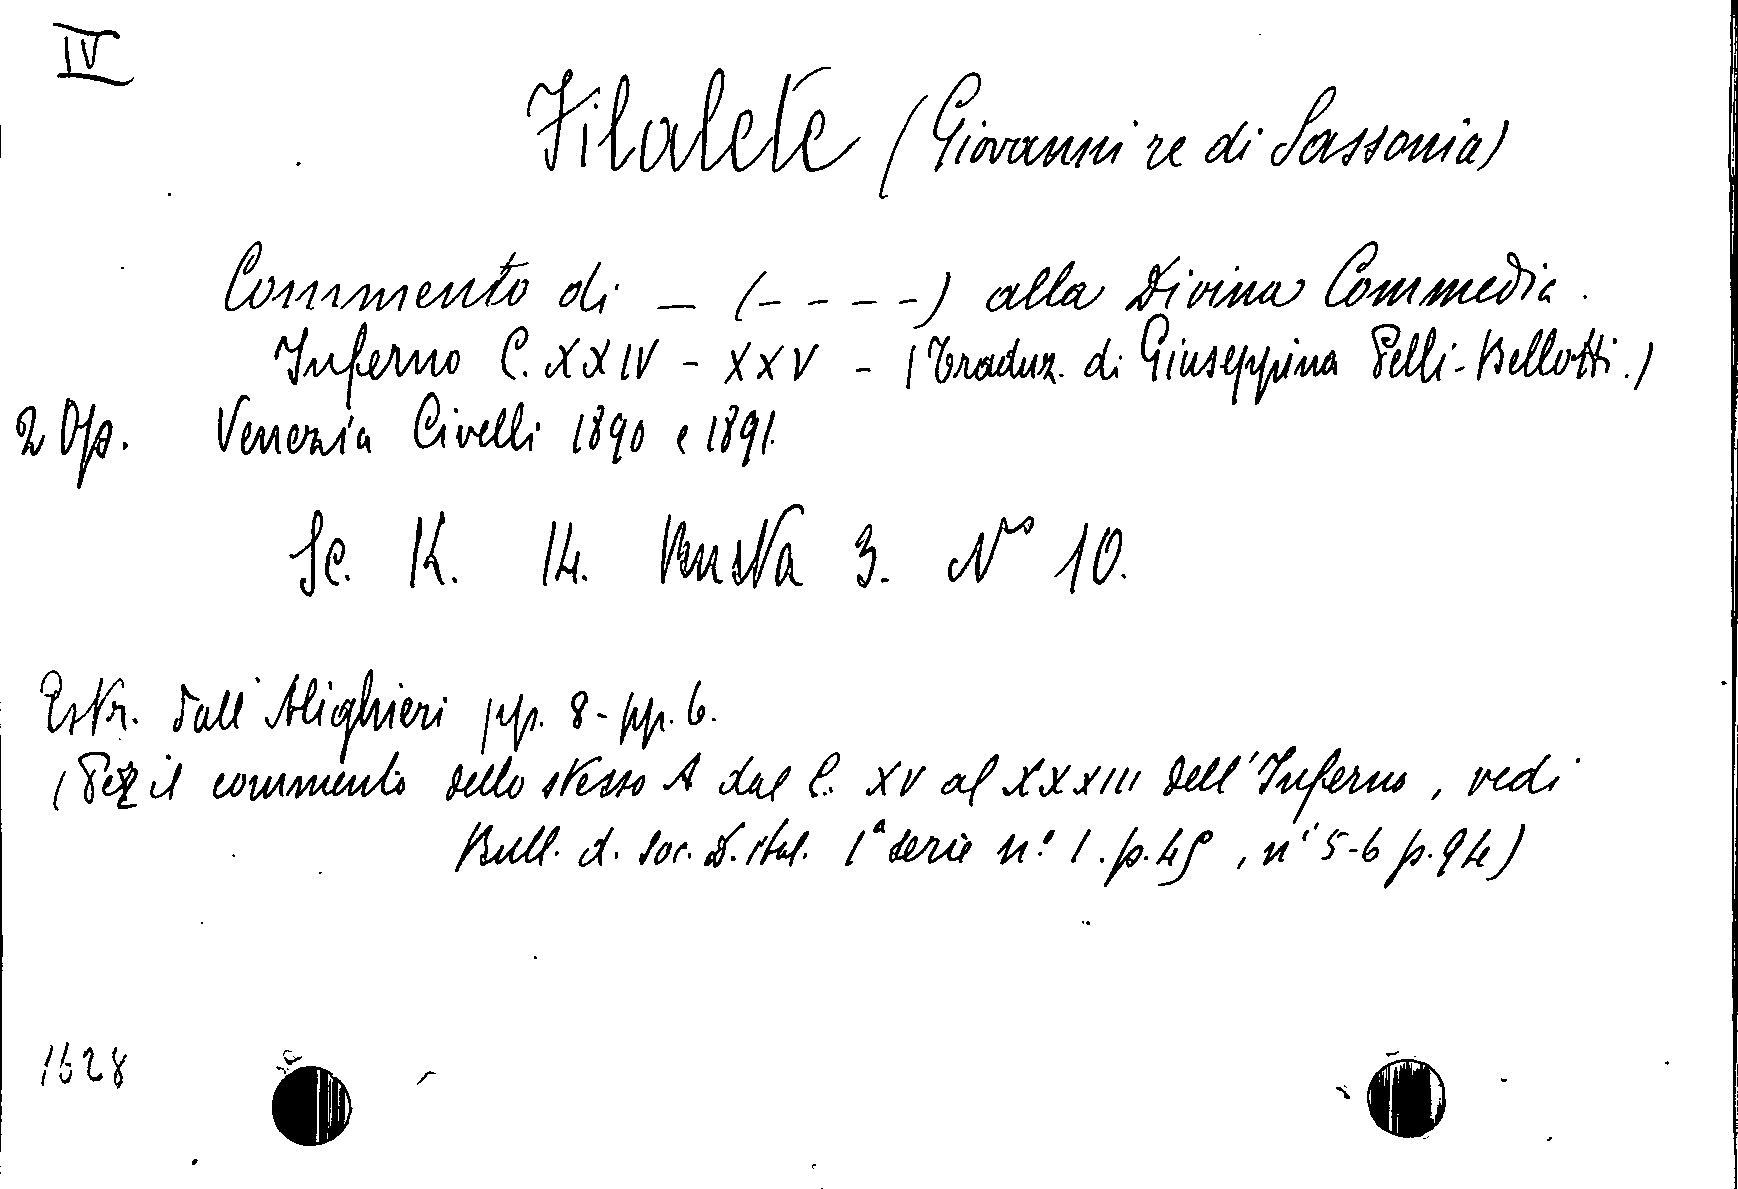 IV
Filalete (Giovanni re di Sassonia)
Commento di _ (- - - -) alla Divina Commedia.
Inferno C. XXIV - XXV - (Traduz. di Giuseppina Pelli-Bellotti.)
2 Op. Venezia Civelli 1890 e 1891.
Sc. K. 14. Busta 3. N° 10.
Estr. dall'Alighieri pp. 8 - pp. 6.
(Per il commento dello stesso A dal C. XV al XXXIII dell'Inferno, vedi
Bull. d. Soc. D. ital. 1ª serie n.° 1. p. 45, ni 5-6 p. 94)
1628